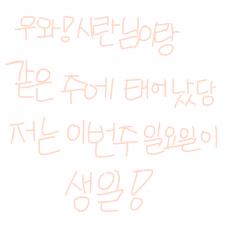 우와! 시란님이랑
같은 주에 태어났당
저는 이번주 일요일이
생일!